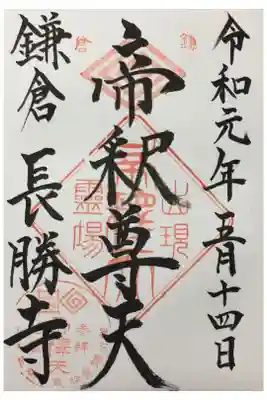 令和元年五月十四日
帝釈尊天
出現
靈場
鎌倉
鎌倉 長勝寺